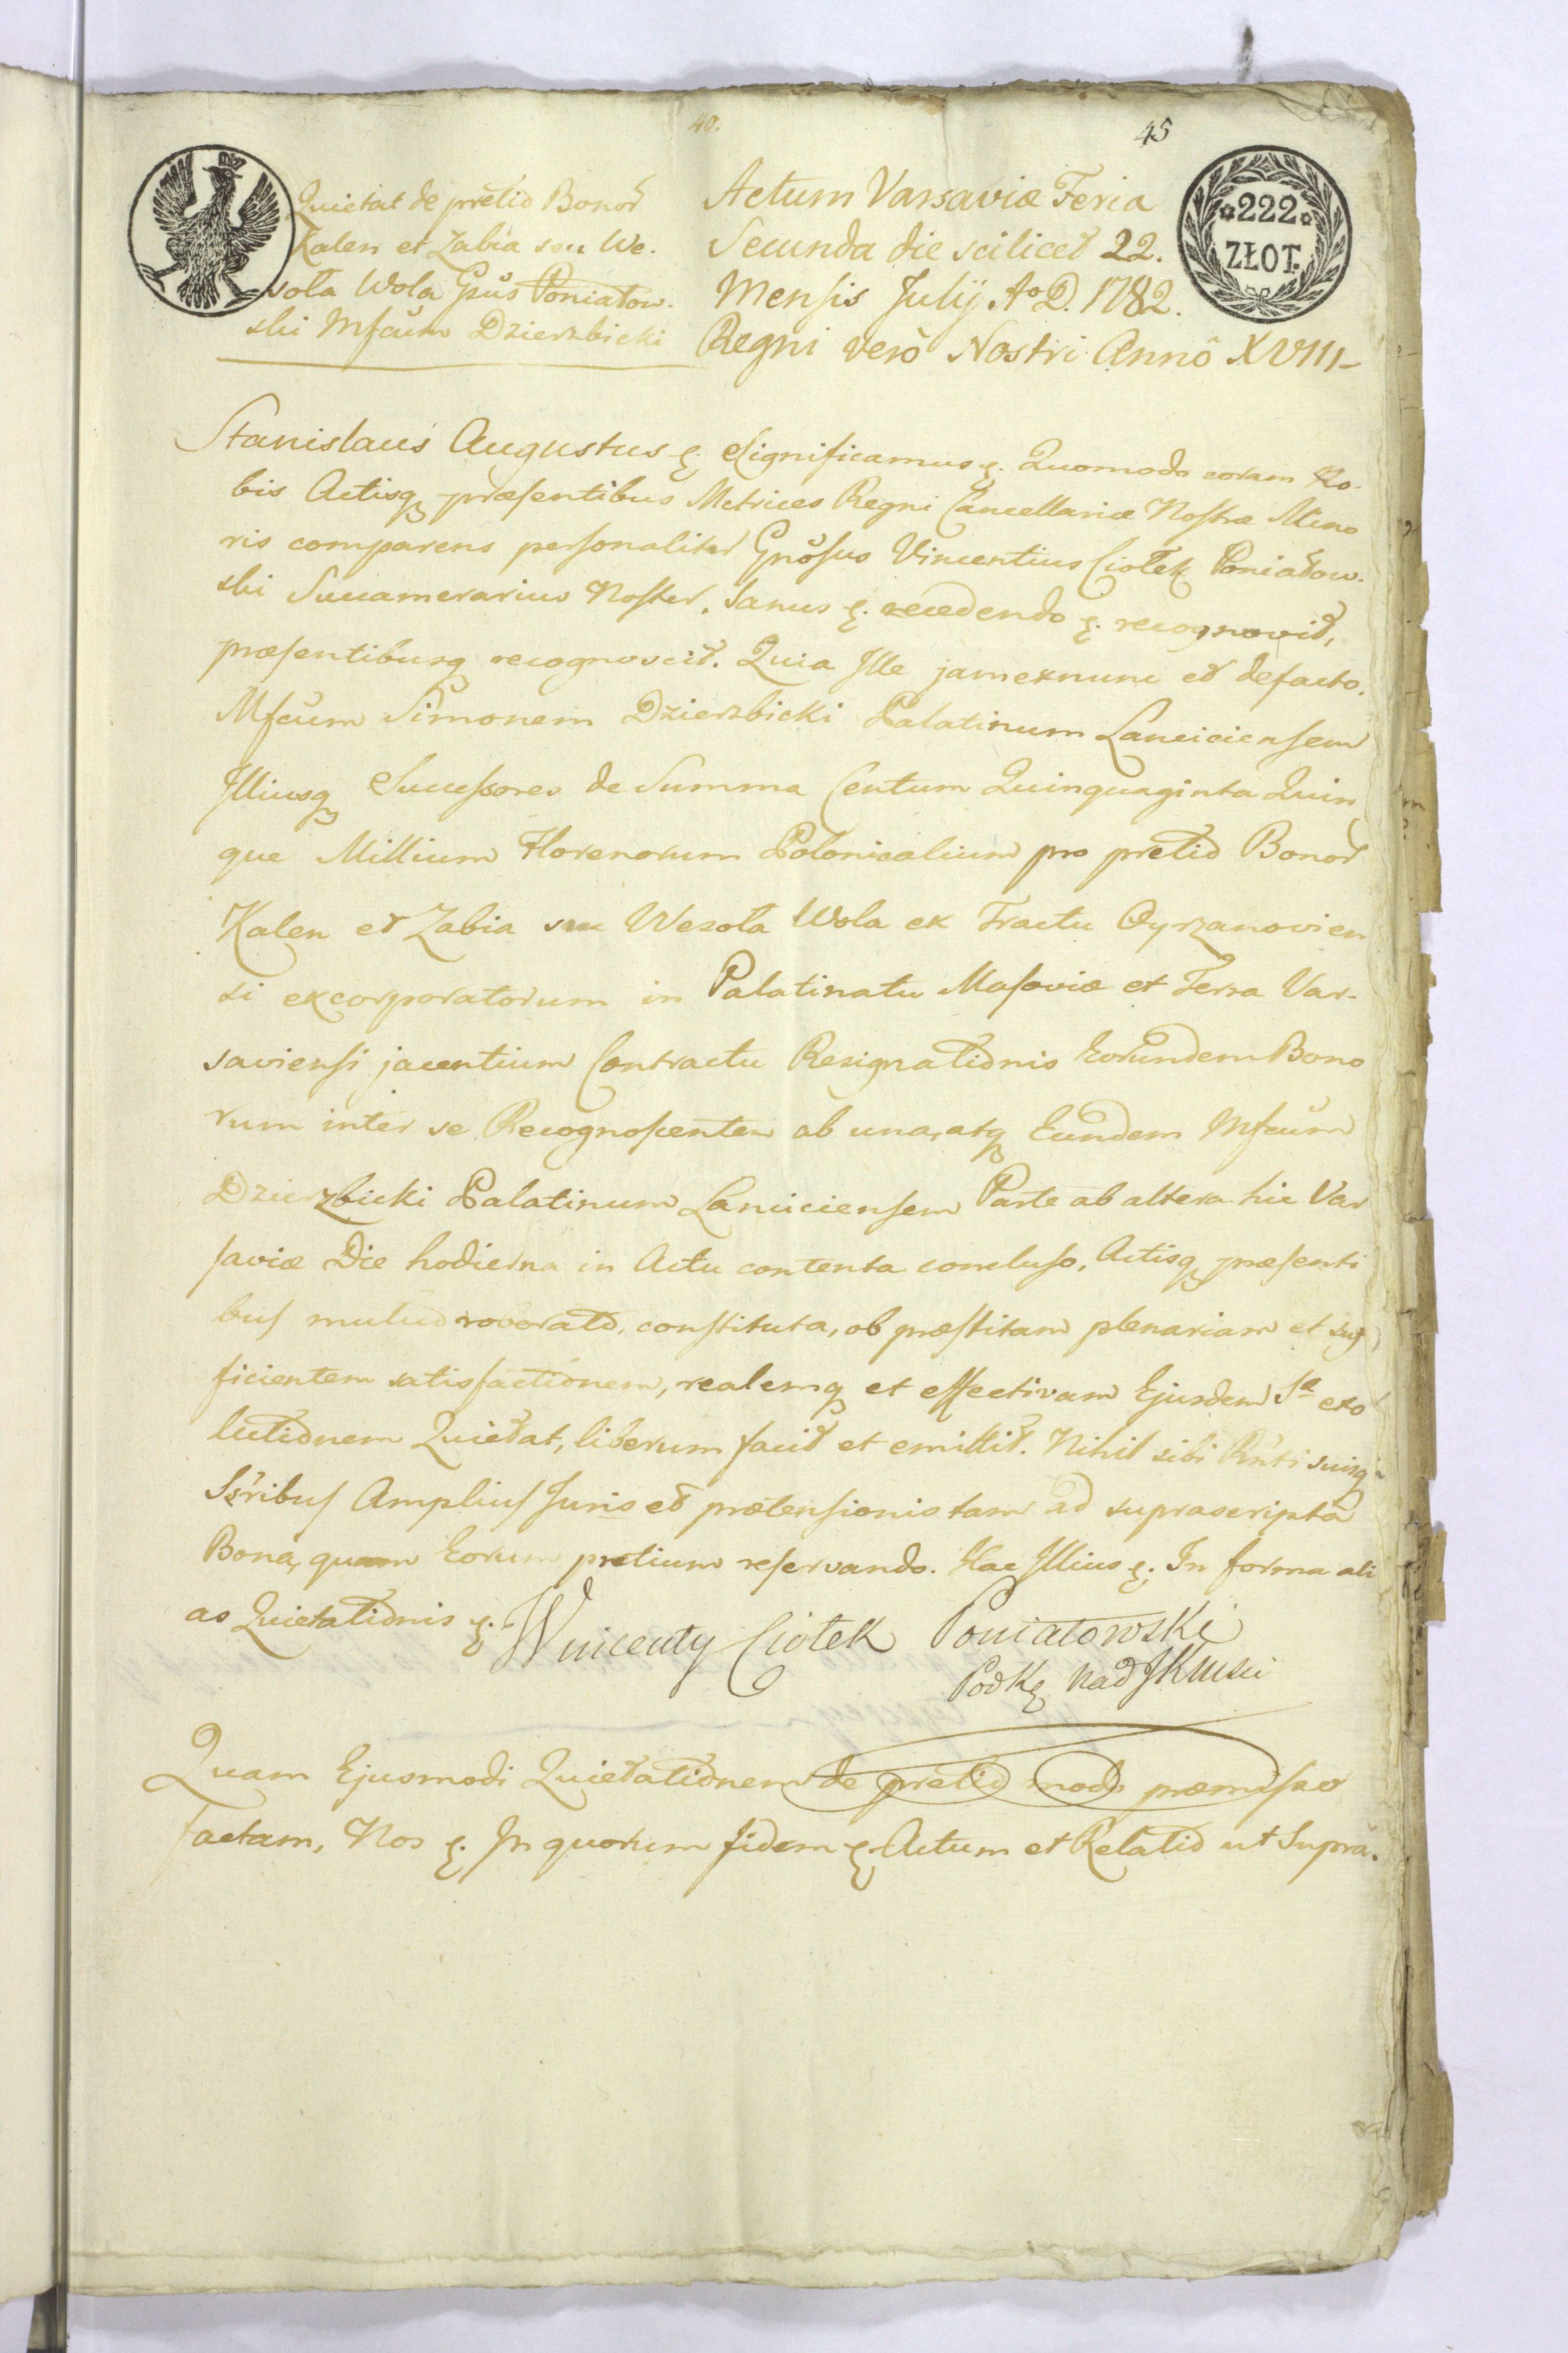 40.
45
222
ZŁOT.
Quietat de pretio Bonor
Kalen et Zabia seu We.
soła Wola Gnus Poniatow.
ski Mfcum Dzierzbicki
Actum Varsaviæ Feria
Secunda die scilicet 22.
Mensis Julij Ao D. 1782.
Regni verò Nostri Annô XVIII
Stanislaus Augustus &. Significamus &. Quomodo coram No-
bis Actisq præsentibus Metrices Regni Cancellariæ Nostræ Mino
ris comparens personaliter Gnosus Vincentius Ciołek Poniatow.
ski Succamerarius Noster. Sanus &. recedendo &. recognovit,
præsentibusq recognoscit. Quia Ille jamexnunc et defacto.
Mfcum Simonem Dzierzbicki Palatinum Lanciciensem
Illiusq Successores de Summa Centum Quinquaginta Quin
que Millium Florenorum Polonicalium pro pretio Bonor
Kalen et Zabia seu Wesoła Wola ex Tractu Oyrzanovien
si excorporatorum in Palatinatu Masoviæ et Terra Var-
saviensi jacentium Contractu Resignationis Eorundem Bono
rum inter se Recognoscentem ab una, atq Eundem Mfcum
Dzierzbicki Palatinum Lanciciensem Parte ab altera hic Var
saviæ Die hodierna in Actu contenta concluso, Actisq præsenti
bus mutuo roborato, constituta, ob præstitam plenariam et suf
ficientem satisfactionem, realemq et effectivam Ejusdem Sæ exo
lutionem Quietat, liberum facit et emittit. Nihil sibi Rnti suisq
Ssribus Amplius Juris et prætensionis tam ad suprascripta
Bona, quam Eorum pretium reservando. Hac Illius &. In forma ali
as Quietationis &.
Wincenty Ciołek Poniatowski
Podk Nad JKMsci
Quam Ejusmodi Quietationem de pretio modo præmisso
factam, Nos &. In quorum fidem &. Actum et Relatio ut Suprà.